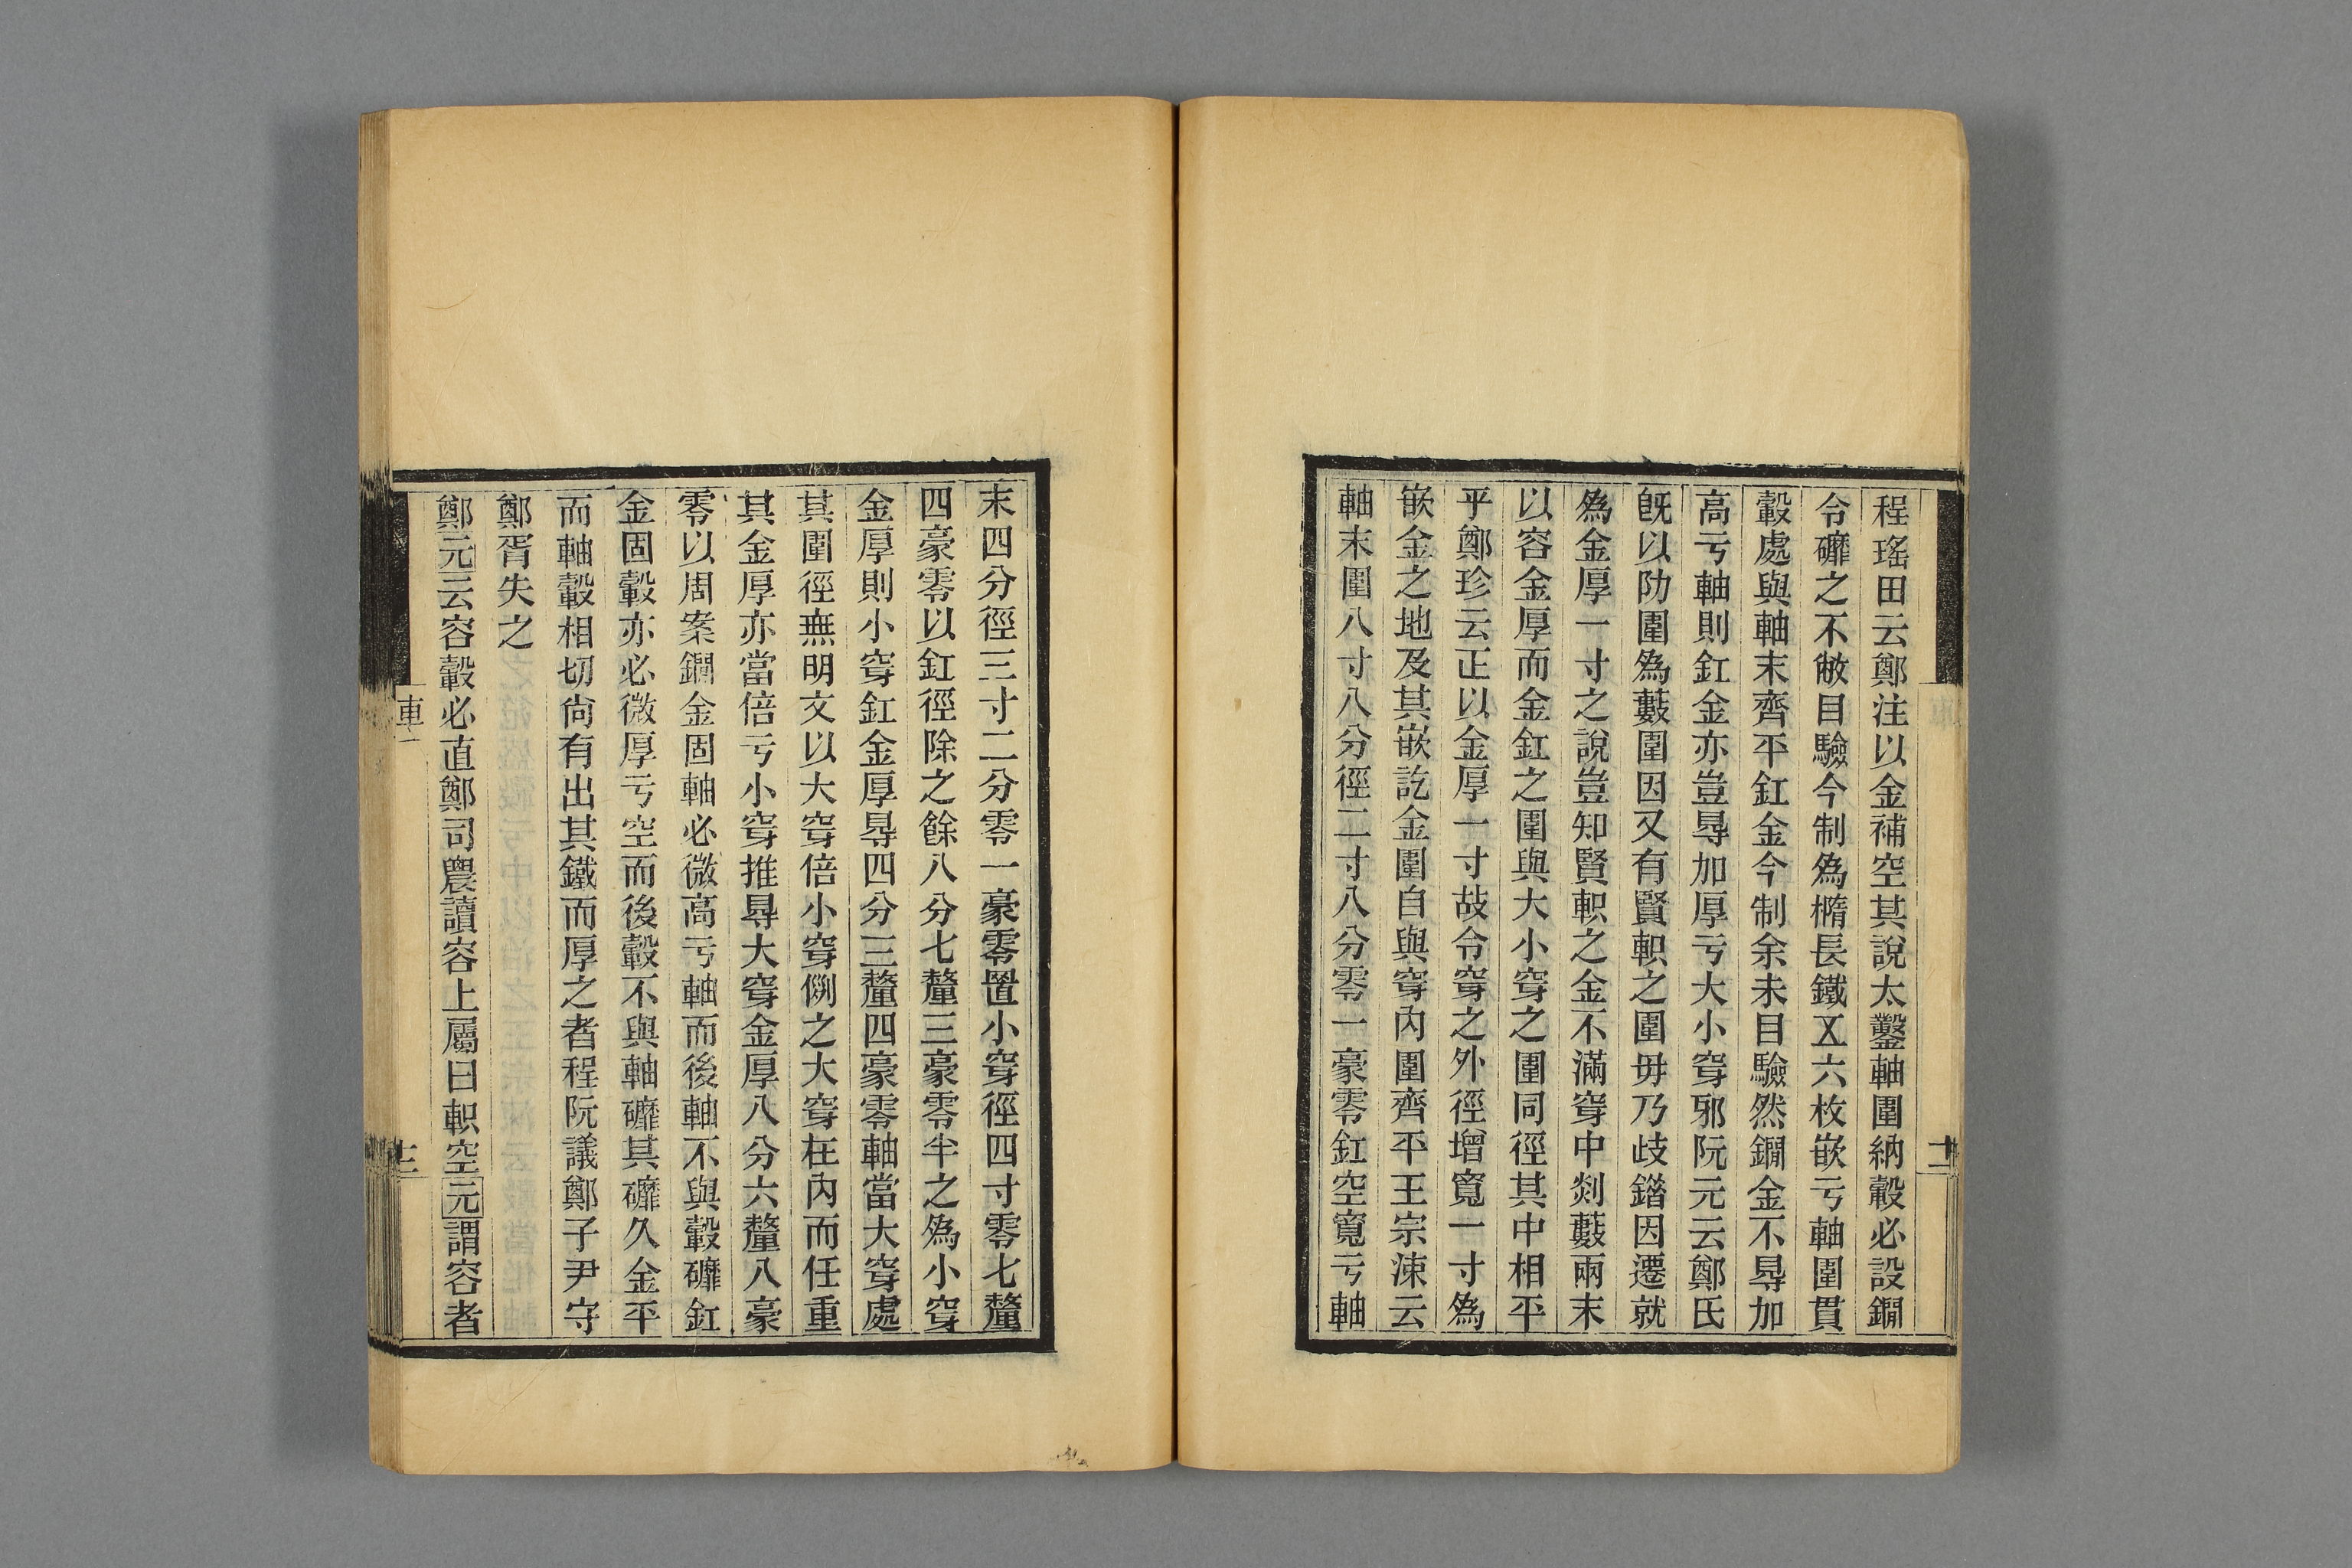 程瑤田云鄭注以金補空其說太鑿軸圍納轂必設鐗
令礳之不敝目驗今制為橢長鐵五六枚嵌亏軸圍貫
轂處與軸末齊平釭金今制余未目驗然鐗金不㝵加
高亏軸則釭金亦豈㝵加厚亏大小穿邪阮元云鄭氏
旣以阞圍為藪圍因又有賢軹之圍毋乃歧鍇因遷就
為金厚一寸之說豈知賢軹之金不滿穿中剡藪兩末
以容金厚而金釭之圍與大小穿之圍同徑其中相平
乎鄭珍云正以金厚一寸故令穿之外徑增寬一寸為
嵌金之地及其嵌訖金圍自與穿內圍齊平王宗涑云
軸末圍八寸八分徑二寸八分零一豪零釭空寬亏軸
末四分徑三寸二分零一豪零置小穿徑四寸零七釐
四豪零以釭徑除之餘八分七釐三豪零半之為小穿
金厚則小穿釭金厚㝵四分三釐四豪零軸當大穿處
其圍徑無明文以大穿倍小穿例之大穿在內而任重
其金厚亦當倍亏小穿推㝵大穿金厚八分六釐八豪
零以周案鐗金固軸必微高亏軸而後軸不與轂礳釭
金固轂亦必微厚亏空而後轂不與軸礳其礳久金平
而軸轂相切尙有出其鐵而厚之者程阮議鄭子尹守
鄭胥失之
鄭元云容轂必直鄭司農讀容上屬曰軹空元謂容者
車一
十三